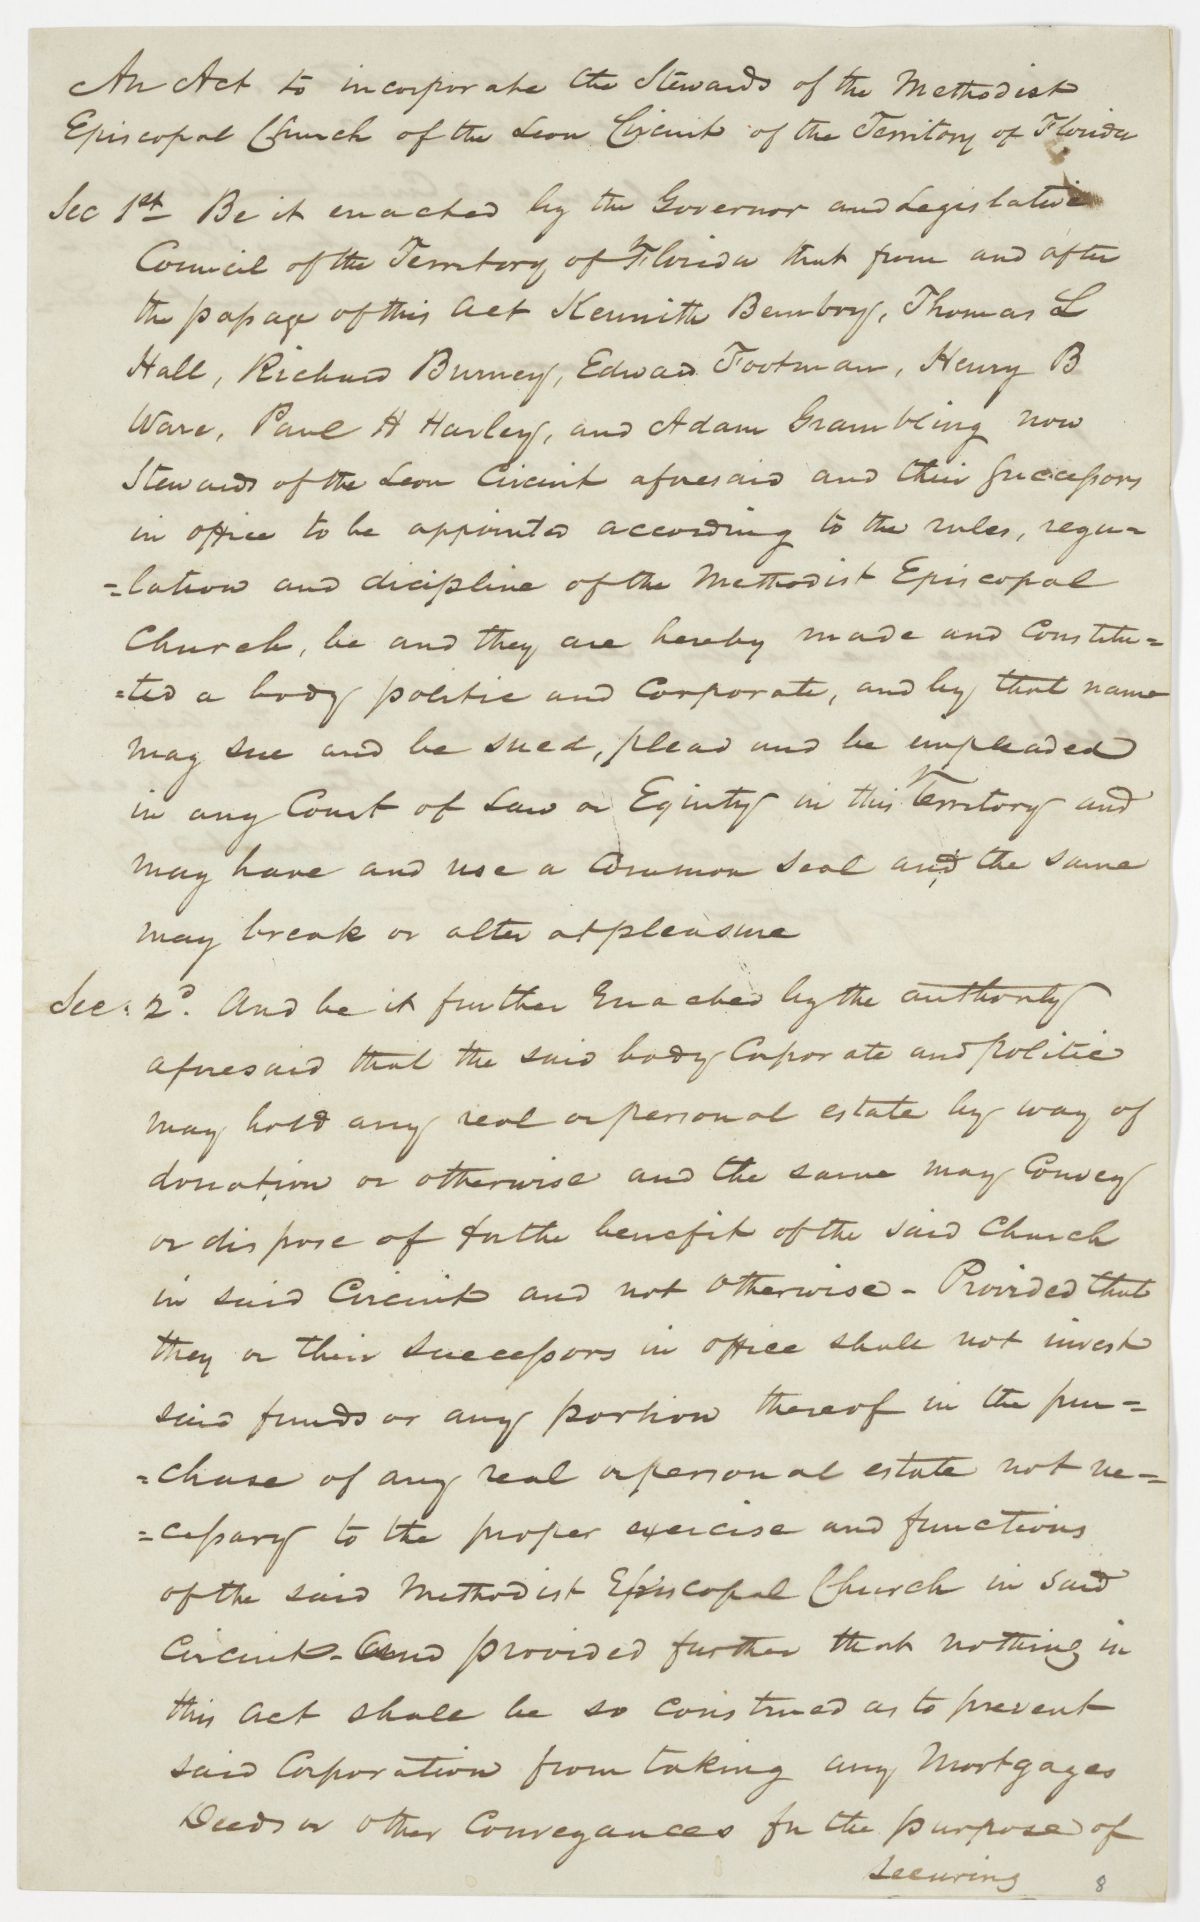 An Act to incorporate the Stewards of the Methodist
Episcopal Church of the Leon Circuit of the Territory of Florida
Sec 1st Be it enacted by the Governor and Legislative
Council of the Territory of Florida that from and after
the passage of this Act Kennith Bembry, Thomas L
Hall, Richard Burney, Edward Footman, Henry B
Ware, Paul H Harley, and Adam Grambling now
Stewards of the Leon Circuit aforesaid and their Successors
in office to be appointed according to the rules, regu=
=lation and dicipline of the Methodist Episcopal
Church, be and they are hereby made and Constitu=
=ted a body politic and Corporate, and by that name
may sue and be sued, plead and be impleaded
in any Court of Law or Equity in this Territory and
may have and use a Common Seal and the same
may break or alter at pleasure
Sec. 2d. And be it further Enacted by the authority
aforesaid that the said body Corporate and politic
may hold any real or personal estate by way of
donation or otherwise and the same may Convey
or dispose of for the benefit of the said Church
in said Circuit and not otherwise - Provided that
they or their Successors in office shall not invest
said funds or any portion thereof in the pur=
=chase of any real or personal estate not ne=
=cessary to the proper exercise and functions
of the said Methodist Episcopal Church in said
Circuit - And provided further that nothing in
this Act shall be so construed as to prevent
said Corporation from taking any Mortgages
Deeds or other Conveyances for the purpose of
Securing
8